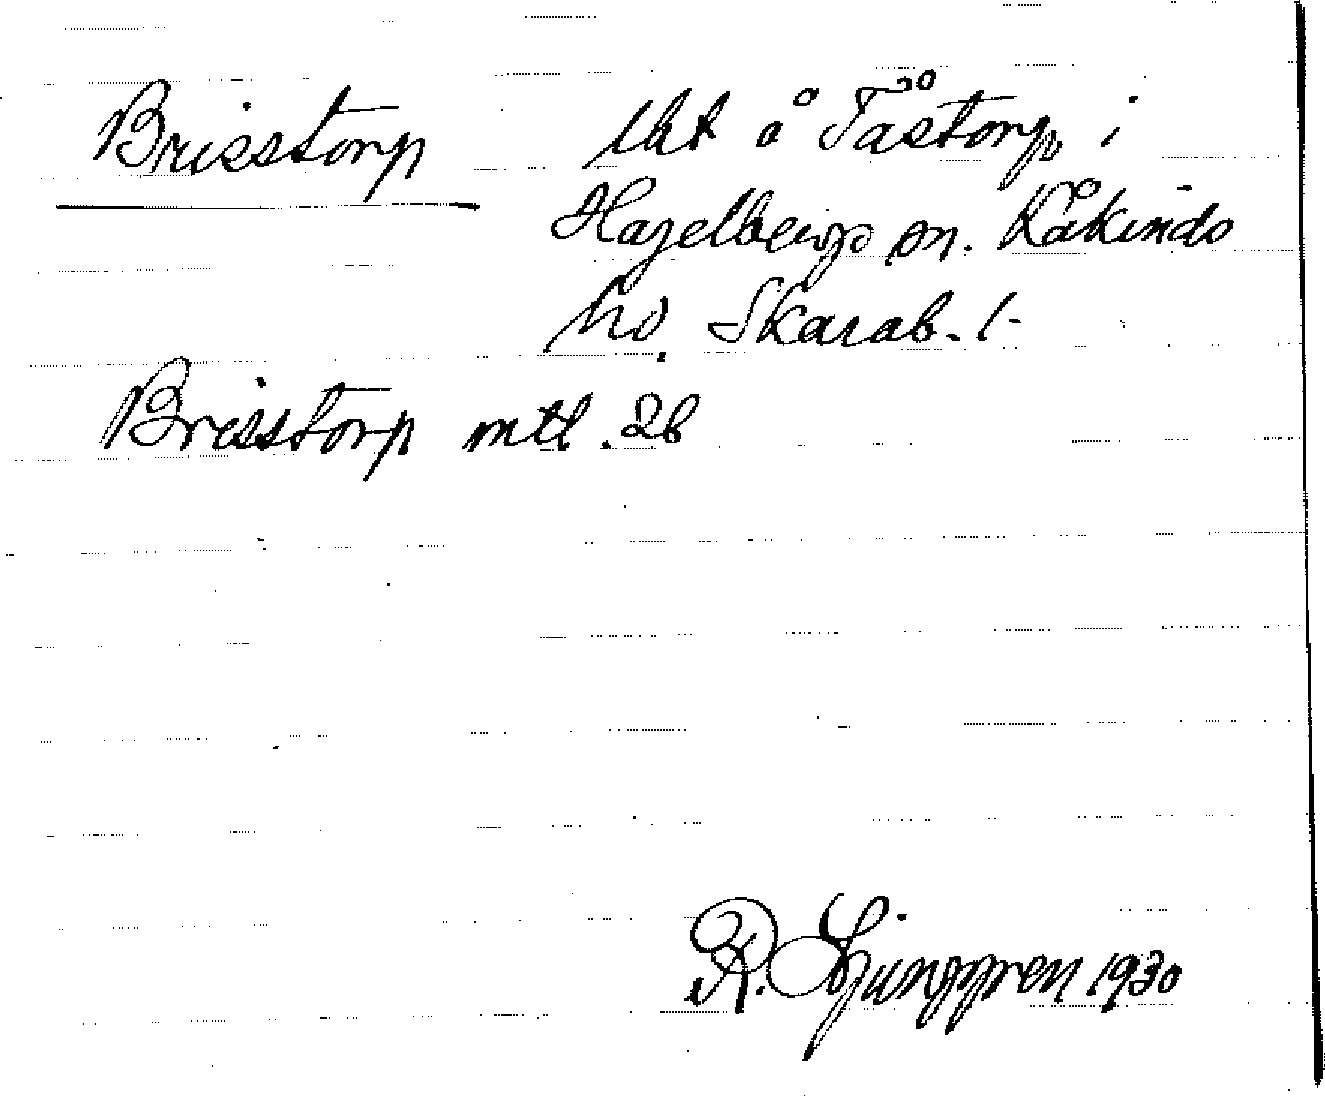 Brisstorp tht å Tåstorp, i
Hagelbergs sn. Kåkinds
hd. Skarab. l-
Brisstorp mtl. 26
R. Ljunggren 1930